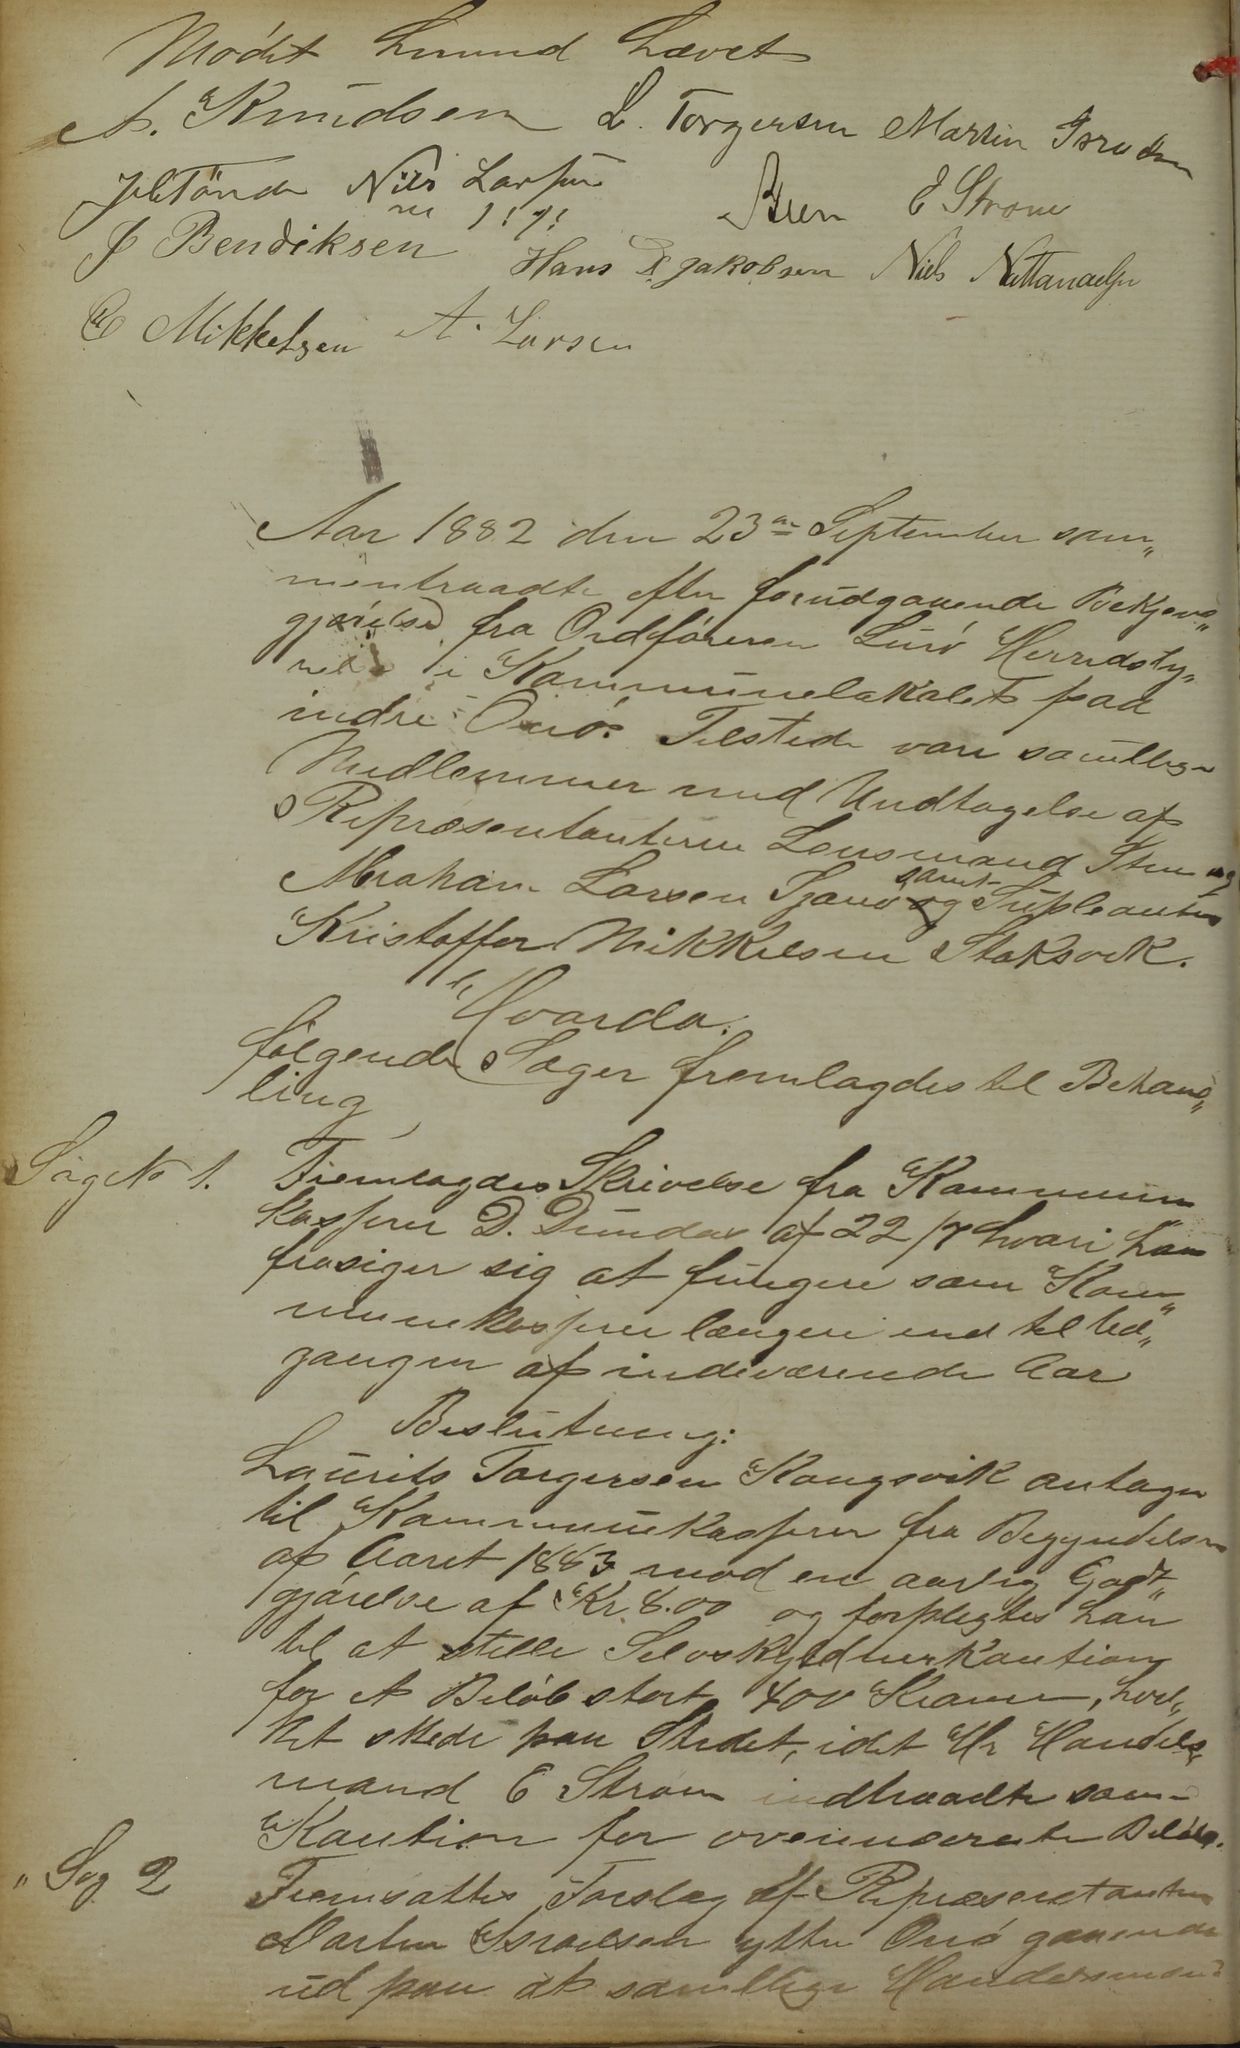 Mødet hermed hævet
A. Knudsen L. Torgersen Martin Israelsen
Nils Larsen
m p p
E Strøm
J Bendiksen Hans Jakobsen Niels Nattanaelsen
C Mikkelsen A. Larsen
Aar 1882 den 23de September sam„
mentraadte efter forudgaaende Bekjend„
gjørelse fra Ordføreren Lurø Herredsty„
relse i Kommunelokalet paa
indre Onø. Tilstede vare samtlige
Medlemmer med Undtagelse af
Repræsentanterne Lensmand Steen og
Abraham Larsen Sjonø samt
og Supleanten
Kristoffer Mikkelsen Stoksvik.
Hvorda.
følgende Sager fremlagdes til Behand„
ling
Sag No 1. Fremlagdes Skrivelse fra Kommune
kasserer D. Dundas af 22/7 hvori han
frasiger sig at fungere som Kom„
munekasserer længere end til Ud„
gangen af indeværende Aar
Beslutning:
Laurits Torgersen Kongsvik antages
til Kommunekasserer fra Begyndelsen
af Aaret 1883 mod en aarlig Godt„
gjørelse af Kr. 8.00 og forpligtes han
til at stille Selvskyldnerkaution
for et Beløb stort 400 Kroner, hvil„
ket skede paa Stedet, idet Hr Handels
mand E Strøm indtraadte som
Kaution for ovennævnte Beløb.
„ Sag 2 Fremsattes Forslag af Repræsentanten
Martin Israelsen ytter Onø gaaende
ud paa at samtlige Handelsmænd